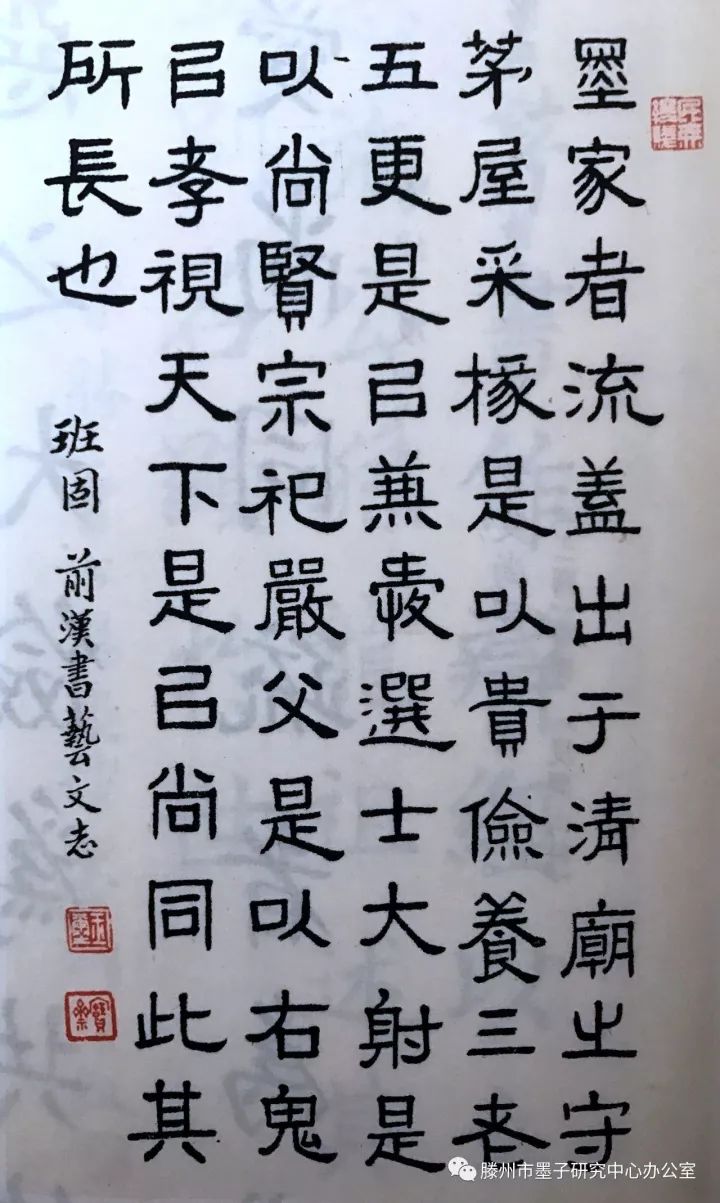 墨家者流蓋出于清廟之守
茅屋采椽是以貴儉養三老
五更是㠯兼愛選士大射是
以尚賢宗祀嚴父是以右鬼
㠯孝視天下是㠯尚同此其
所長也
班固 前漢書藝文志
滕州市墨子研究中心办公室